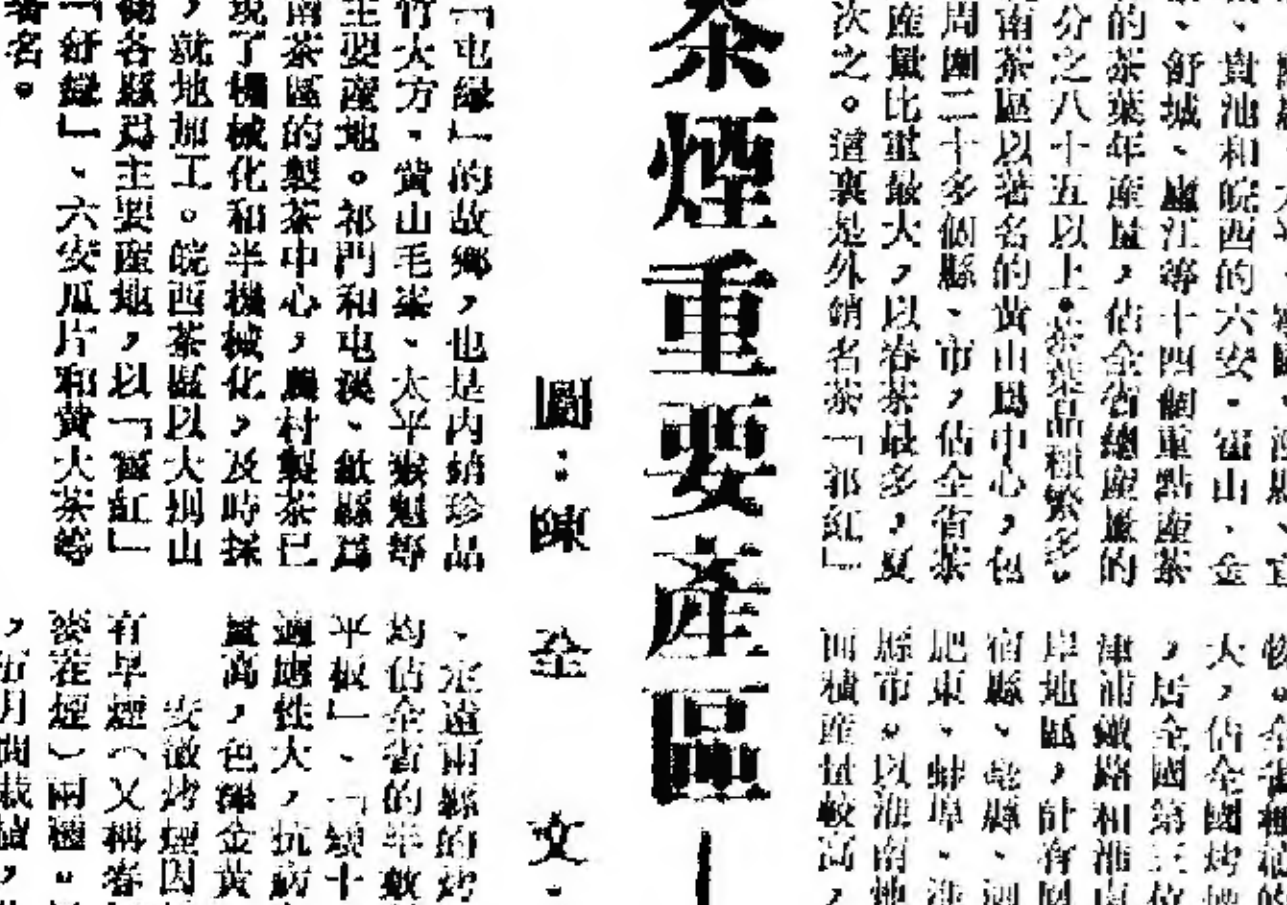 、貴池和皖西的六安、霍山、金
、舒城、廬江等十四個重點產茶
的茶葉年產量，佔全省總產量的
分之八十五以上。茶葉品種繁多。
南茶區以著名的黃山為中心，包
周圍二十多個縣、市，佔全省茶
產量比重最大，以春茶最多，夏
次之。這裏是外銷名茶「祁紅」
大，佔全國烤煙
，居全國第三位
津浦鐵路和淮南
岸地區，計有鳳
宿縣、亳縣、
肥東、蚌埠、
縣市。以淮南地
面積產量較高，
茶煙重要產區—
圖：陳全 文：
「屯綠」的故鄉，也是內銷珍品
竹大方、黃山毛峯、太平猴魁等
主要產地。祁門和屯溪、歙縣爲
南茶區的製茶中心，農村製茶已
現了機械化和半機械化，及時採
，就地加工。皖西茶區以大別山
各縣爲主要產地，以「霍紅」
「舒綠」、六安瓜片和黃大茶等
著名。
、定遠兩縣的烤
均佔全省的半數
平板」、「頭十
適應性大，抗病
量高，色澤金黃
安徽烤煙因
有早煙（又稱春
麥茬煙）兩種。
，五月間栽植，